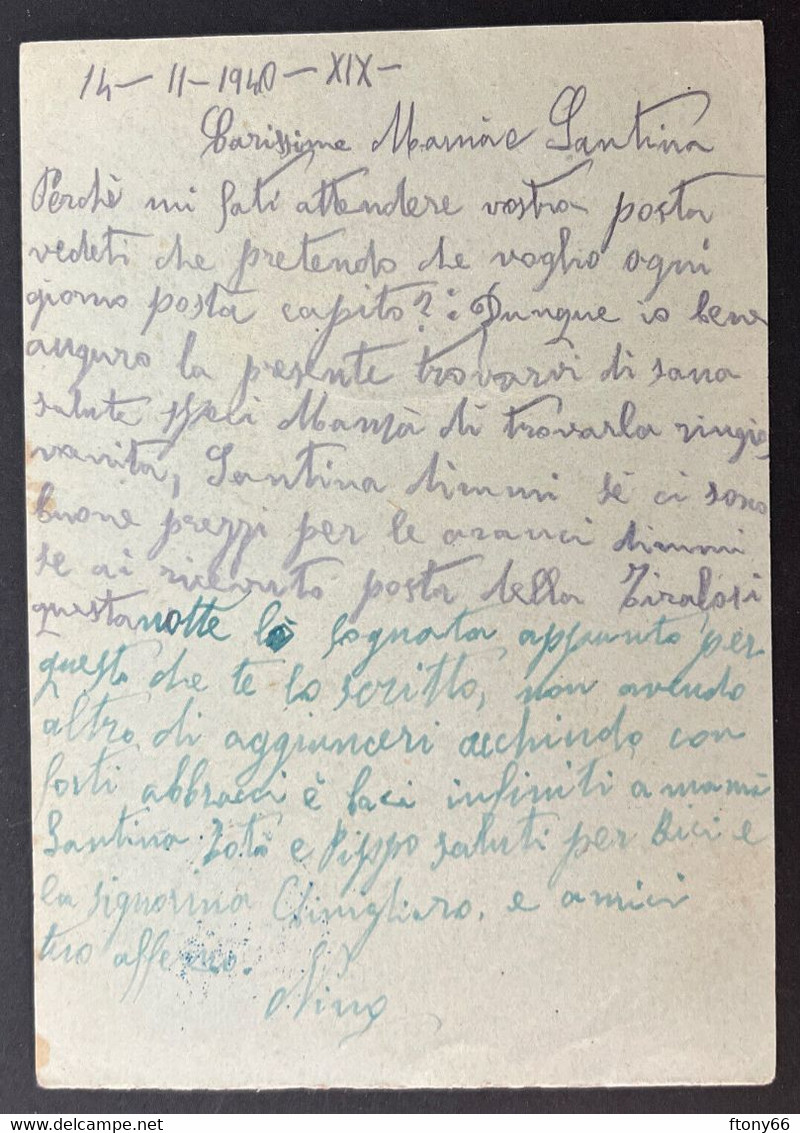 14 - II - 1940 - XIX -
Carissime Mamà e Santina
Perchè mi fati attendere vostra posta
vedeti che pretendo che voglio ogni
giorno posta capito?: Dunque io bene
auguro la presente trovarvi di sana
salute speci Mamà di trovarla ringio
vanita, Santina dimmi sè ci sono
buone prezzi per le aranci dimmi
se ai ricevuto posta della Tiralosi
questa notte la Cognata appunto per
questo che te lo scritto, non avendo
altro di aggiunceri acchiudo con
forti abbracci è baci infiniti a mamà
Santina Totò e Pippo saluti per Bici e
la signorina e amici
tuo affe mo.
Nino
www.delcampe.net
ftony66